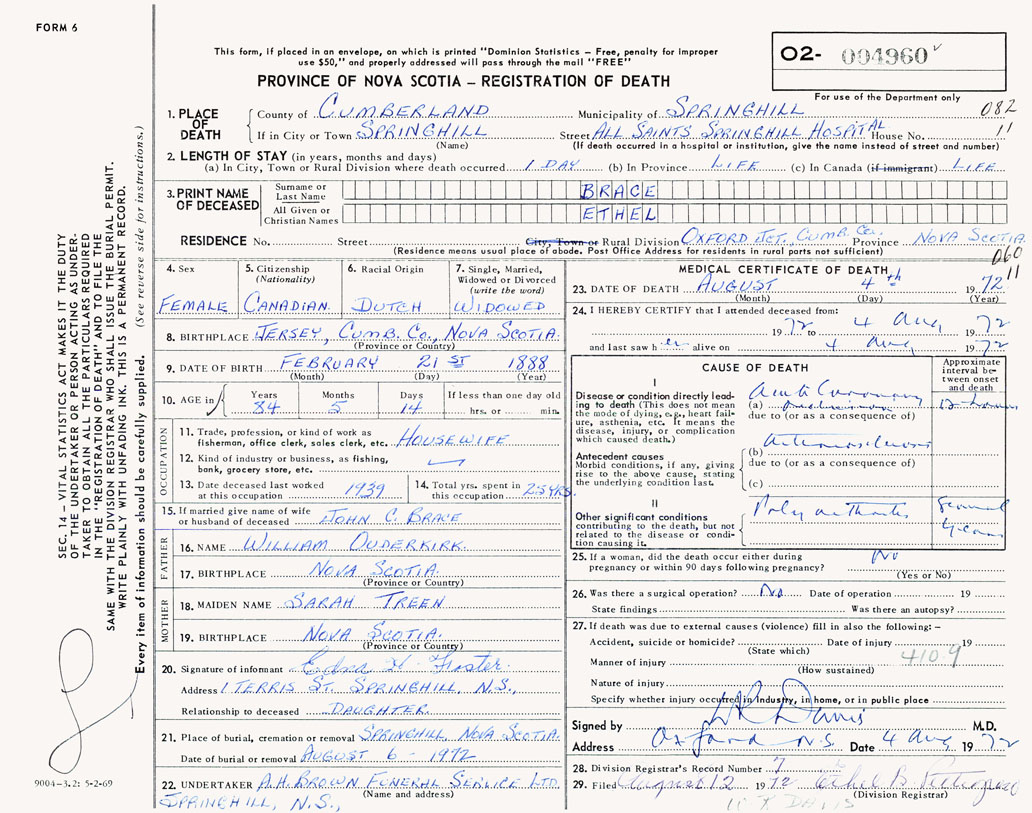 FORM 6
This form, if placed in an envelope, on which is printed "Dominion Statistics – Free, penalty for improper
use $50," and properly addressed will pass through the mail "FREE"
PROVINCE OF NOVA SCOTIA – REGISTRATION OF DEATH
O2- 004960
For use of the Department only
082
11
1. PLACE OF DEATH
County of CUMBERLAND Municipality of SPRINGHILL
If in City or Town SPRINGHILL Street ALL SAINTS SPRINGHILL HOSPITAL House No.
(Name) (If death occurred in a hospital or institution, give the name instead of street and number)
2. LENGTH OF STAY (in years, months and days)
(a) In City, Town or Rural Division where death occurred 1 DAY (b) In Province LIFE (c) In Canada (if immigrant) LIFE
3. PRINT NAME OF DECEASED
Surname or Last Name BRACE
All Given or Christian Names ETHEL
RESIDENCE No. Street City, Town or Rural Division OXFORD JCT., CUMB. CO. Province NOVA SCOTIA
(Residence means usual place of abode. Post Office Address for residents in rural parts not sufficient)
060
11
4. Sex FEMALE
5. Citizenship (Nationality) CANADIAN.
6. Racial Origin DUTCH
7. Single, Married, Widowed or Divorced (write the word) WIDOWED
8. BIRTHPLACE JERSEY, CUMB. CO., NOVA SCOTIA.
(Province or Country)
9. DATE OF BIRTH FEBRUARY 21 ST 1888
(Month) (Day) (Year)
10. AGE in Years 84 Months 5 Days 14 If less than one day old hrs. or min.
OCCUPATION
11. Trade, profession, or kind of work as fisherman, office clerk, sales clerk, etc. HOUSEWIFE
12. Kind of industry or business, as fishing, bank, grocery store, etc.
13. Date deceased last worked at this occupation 1939
14. Total yrs. spent in this occupation 25 YRS.
15. If married give name of wife or husband of deceased JOHN C. BRACE
FATHER
16. NAME WILLIAM OUDERKIRK.
17. BIRTHPLACE NOVA SCOTIA.
(Province or Country)
MOTHER
18. MAIDEN NAME SARAH TREEN
19. BIRTHPLACE NOVA SCOTIA.
(Province or Country)
20. Signature of informant Edna H. Foster.
Address 1 TERRIS ST. SPRINGHILL, N.S.,
Relationship to deceased DAUGHTER.
21. Place of burial, cremation or removal SPRINGHILL NOVA SCOTIA.
Date of burial or removal AUGUST 6 - 1972
22. UNDERTAKER A.H. BROWN FUNERAL SERVICE LTD.
(Name and address)
SPRINGHILL, N.S.,
MEDICAL CERTIFICATE OF DEATH
23. DATE OF DEATH AUGUST 4th 1972
(Month) (Day) (Year)
24. I HEREBY CERTIFY that I attended deceased from:
1972 to 4 Aug 1972
and last saw her alive on 4 Aug 1972
CAUSE OF DEATH
Approximate interval between onset and death
I
Disease or condition directly leading to death (This does not mean the mode of dying, e.g., heart failure, asthenia, etc. It means the disease, injury, or complication which caused death.)
(a) Acute Coronary
due to (or as a consequence of)
12 hours
Antecedent causes
Morbid conditions, if any, giving rise to the above cause, stating the underlying condition last.
(b) Arteriosclerosis
due to (or as a consequence of)
(c)
II
Other significant conditions contributing to the death, but not related to the disease or condition causing it.
Poly arthritis
Several years
25. If a woman, did the death occur either during pregnancy or within 90 days following pregnancy? No
(Yes or No)
26. Was there a surgical operation? No Date of operation 19
State findings Was there an autopsy?
27. If death was due to external causes (violence) fill in also the following: –
Accident, suicide or homicide? Date of injury 19
(State which)
410.9
Manner of injury
(How sustained)
Nature of injury
Specify whether injury occurred in Industry, in home, or in public place
Signed by Davis M.D.
Address Oxford N.S. Date 4 Aug 1972
28. Division Registrar's Record Number 7
29. Filed August 2 1972 Ethel B.
(Division Registrar)
SEC. 14 – VITAL STATISTICS ACT MAKES IT THE DUTY
OF THE UNDERTAKER OR PERSON ACTING AS UNDER-
TAKER TO OBTAIN ALL THE PARTICULARS REQUIRED
IN THE "REGISTRATION OF DEATH" AND TO FILE THE
SAME WITH THE DIVISION REGISTRAR WHO SHALL ISSUE THE BURIAL PERMIT.
WRITE PLAINLY WITH UNFADING INK. THIS IS A PERMANENT RECORD.
Every item of information should be carefully supplied. (See reverse side for instructions.)
9004–3.2: 5-2-69